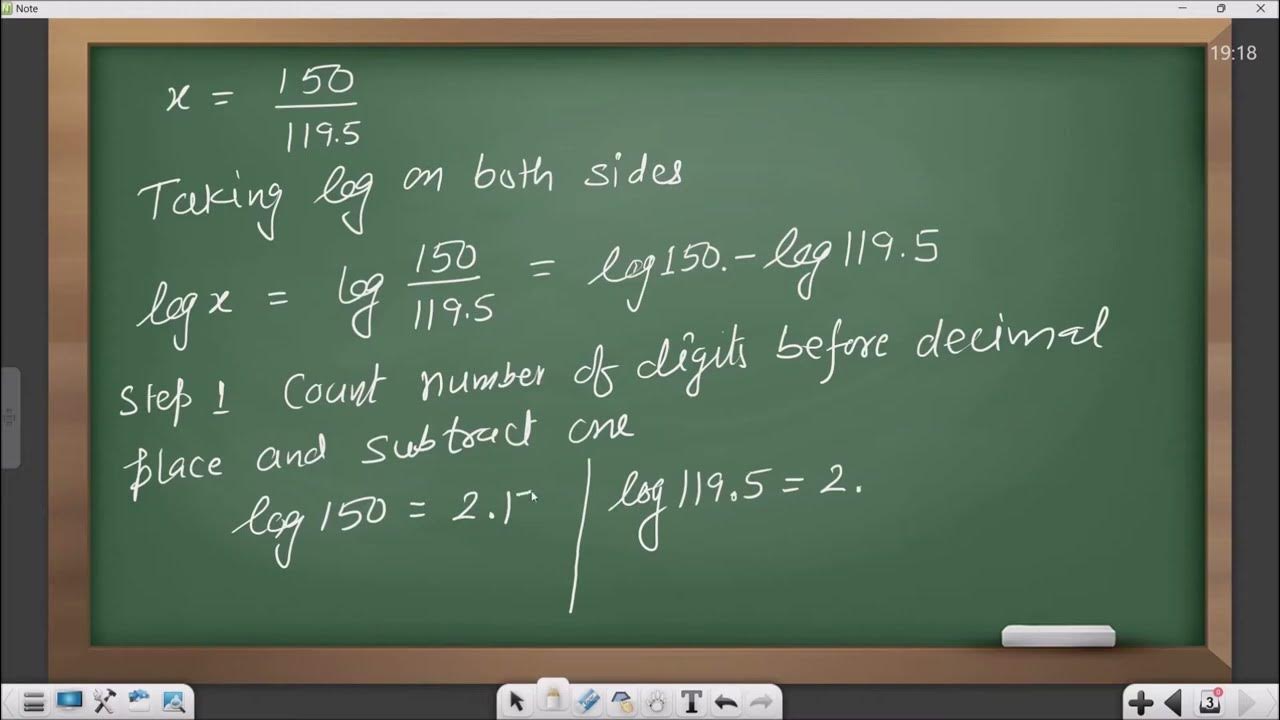 Note
19:18
x = 150/119.5
Taking log on both sides
log x = log 150/119.5 = log 150. - log 119.5
Step 1 Count number of digits before decimal
place and subtract one
log 150 = 2.1
log 119.5 = 2.
T
3
0